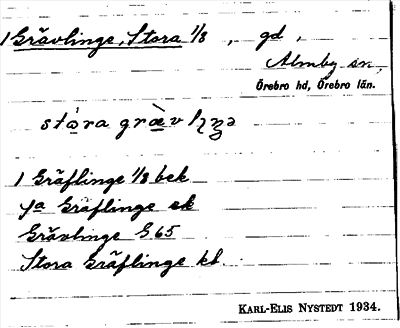 1 Grävlinge, Stora 1/8, gd,
Almby sn,
Örebro hd, Örebro län.
1 Gräflinge 1/8 bek
Gräflinge ek
Grävlinge G 65
Stora Gräflinge kb.
KARL-ELIS NYSTEDT 1934.